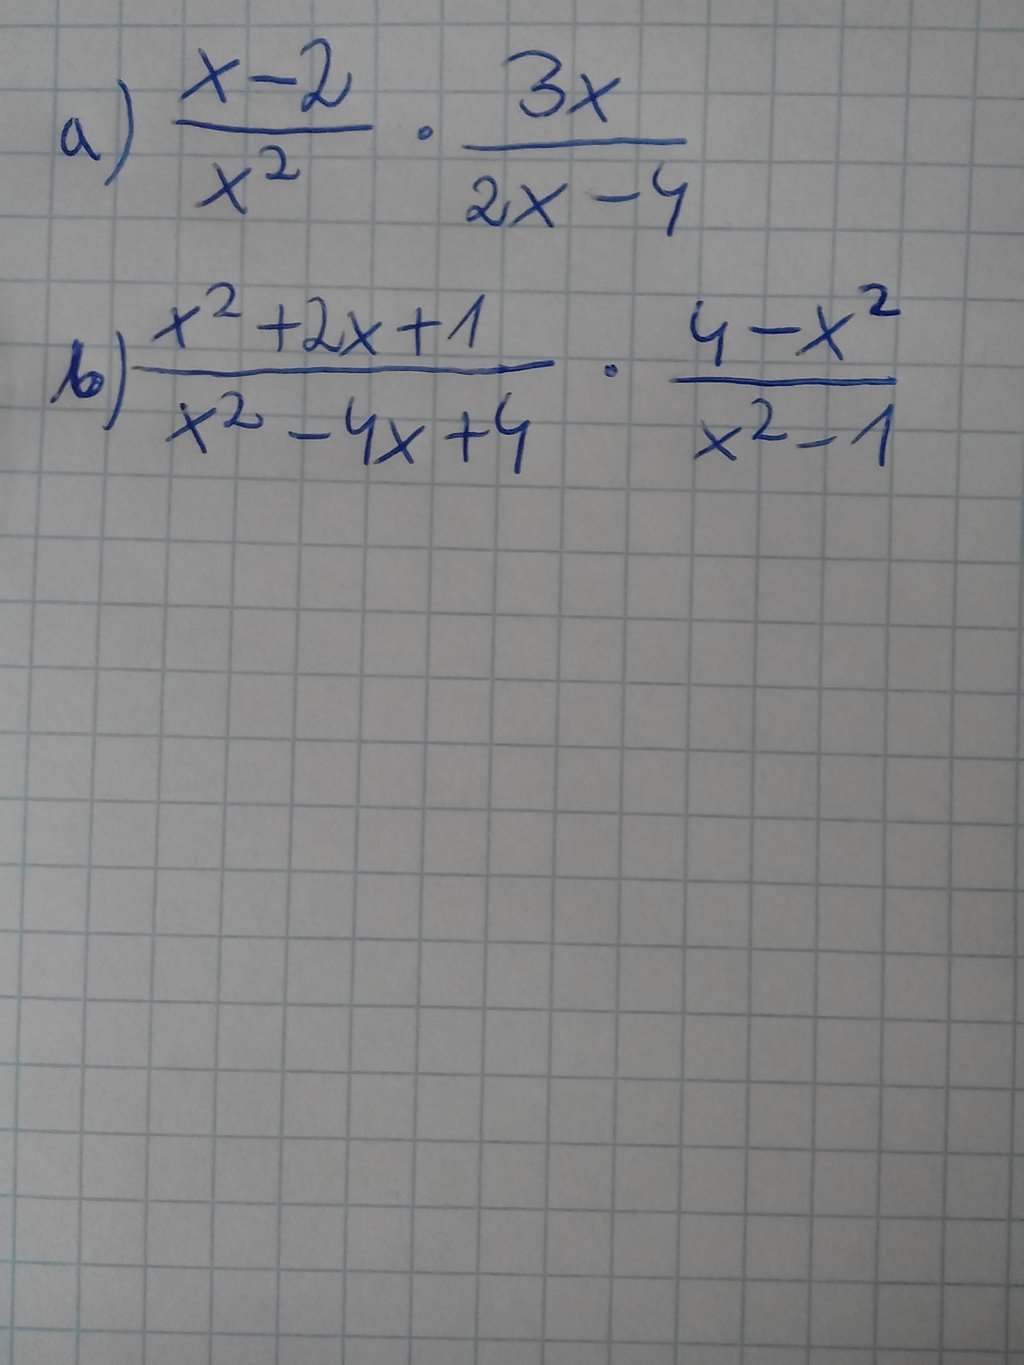 a) \frac{x-2}{x^2} \cdot \frac{3x}{2x-4}
b) \frac{x^2+2x+1}{x^2-4x+4} \cdot \frac{4-x^2}{x^2-1}